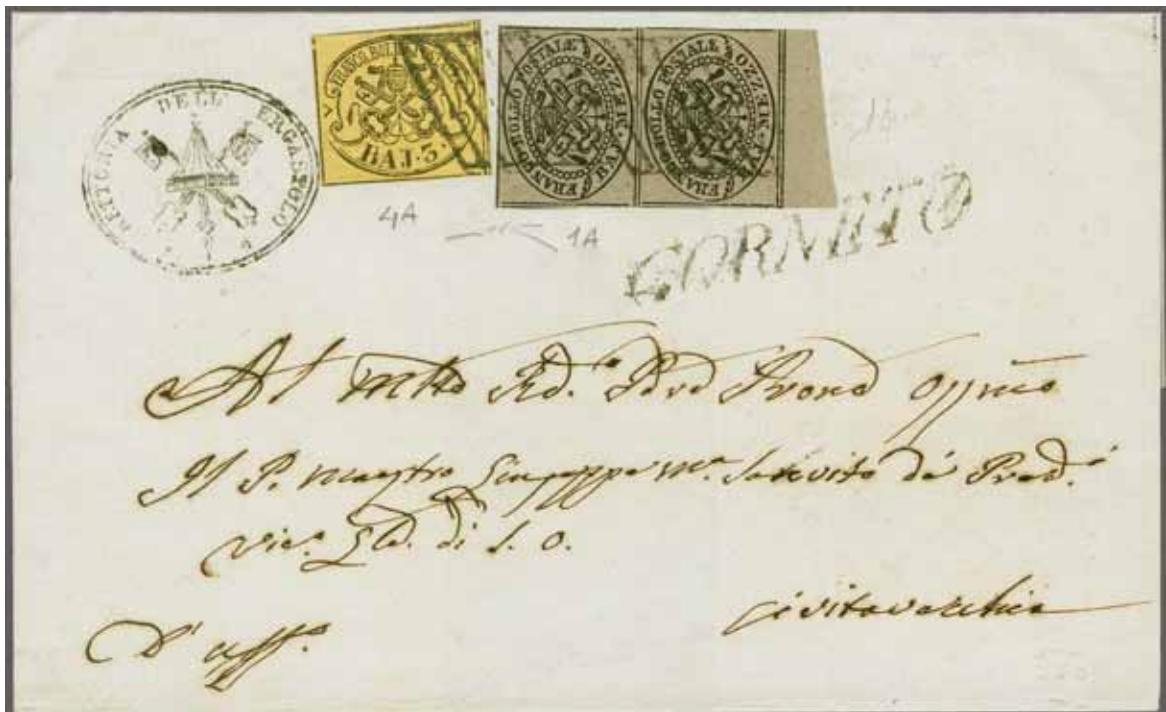 RETTORIA DELL' ERGASTOLO
FRANCO BOLLO
BAJ. 3.
FRANCO BOLLO POSTALE MEZZO BAJ.
FRANCO BOLLO POSTALE MEZZO BAJ.
4A
1A
CORNETO
Al Molto Rd.º Pdre Prone
Il P. Maestro Giuseppe Mª. Sanvito de' Pred.i
Vic.º di S. O.
Civitavecchia
D' uff.º